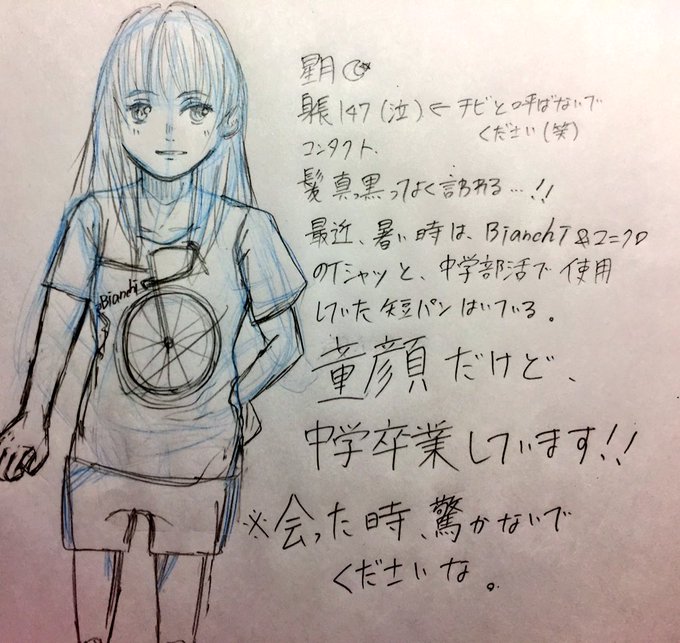 星月
身長147(泣)←チビと呼ばないで
ください(笑)
コンタクト、
髪真っ黒ってよく言われる…!!
最近、暑い時は、Bianchi&ユニクロ
のTシャツと、中学部活で使用
していた短パンはいている。
童顔だけど、
中学卒業しています!!
※会った時、驚かないで
くださいな。
Bianchi